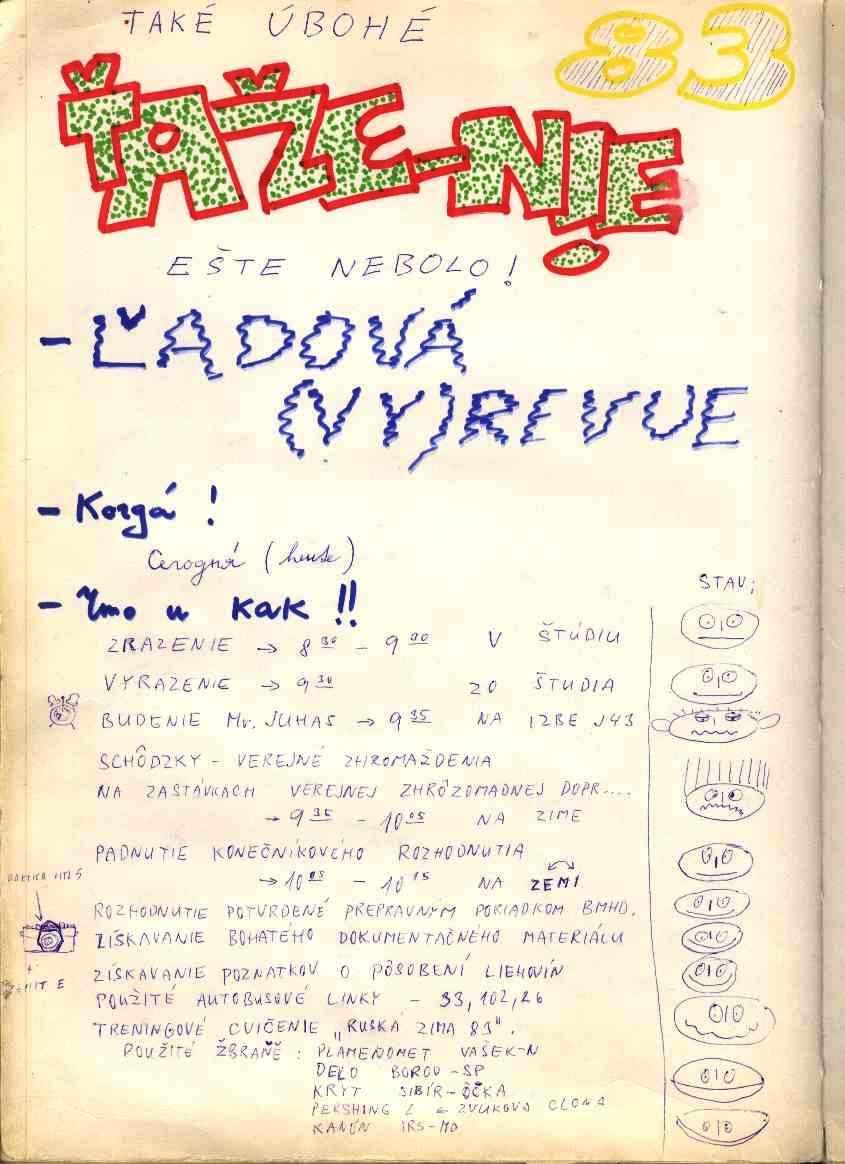 TAKÉ ÚBOHÉ
83
ŤAŽE-NIE
EŠTE NEBOLO!
- ĽADOVÁ
(VY)REVUE
- Korgá !
Cerogná
- Ymo u kak !!
STAV:
ZRAZENIE → 8 30 - 9 00 V ŠTÚDIU
VYRAZENIE → 9 30 ZO ŠTUDIA
BUDENIE Mr. JUHAS → 9 35 NA IZBE J43
SCHÔDZKY - VEREJNÉ ZHROMAŽDENIA
NA ZASTÁVKACH VEREJNEJ ZHRÔZOMADNEJ DOPR....
→ 9 35 - 10 05 NA ZIME
PADNUTIE KONEČNÍKOVÉHO ROZHODNUTIA
→ 10 05 - 10 15 NA ZEMI
ROZHODNUTIE POTVRDENÉ PREPRAVNÝM PORIADKOM BMHD.
ZÍSKAVANIE BOHATÉHO DOKUMENTAČNÉHO MATERIÁLU
ZÍSKAVANIE POZNATKOV O PÔSOBENÍ LIEHOVÍN
POUŽITÉ AUTOBUSOVÉ LINKY - 33, 102, 26
TRENINGOVÉ CVIČENIE „RUSKÁ ZIMA 83".
POUŽITÉ ZBRAŇE : PLAMEŇOMET VAŠEK-N
DELO BOROV-SP
KRYT SIBÍR-ÔČKA
PERSHING 2 ← ZVUKOVÁ CLONA
KANÓN IRS-MO